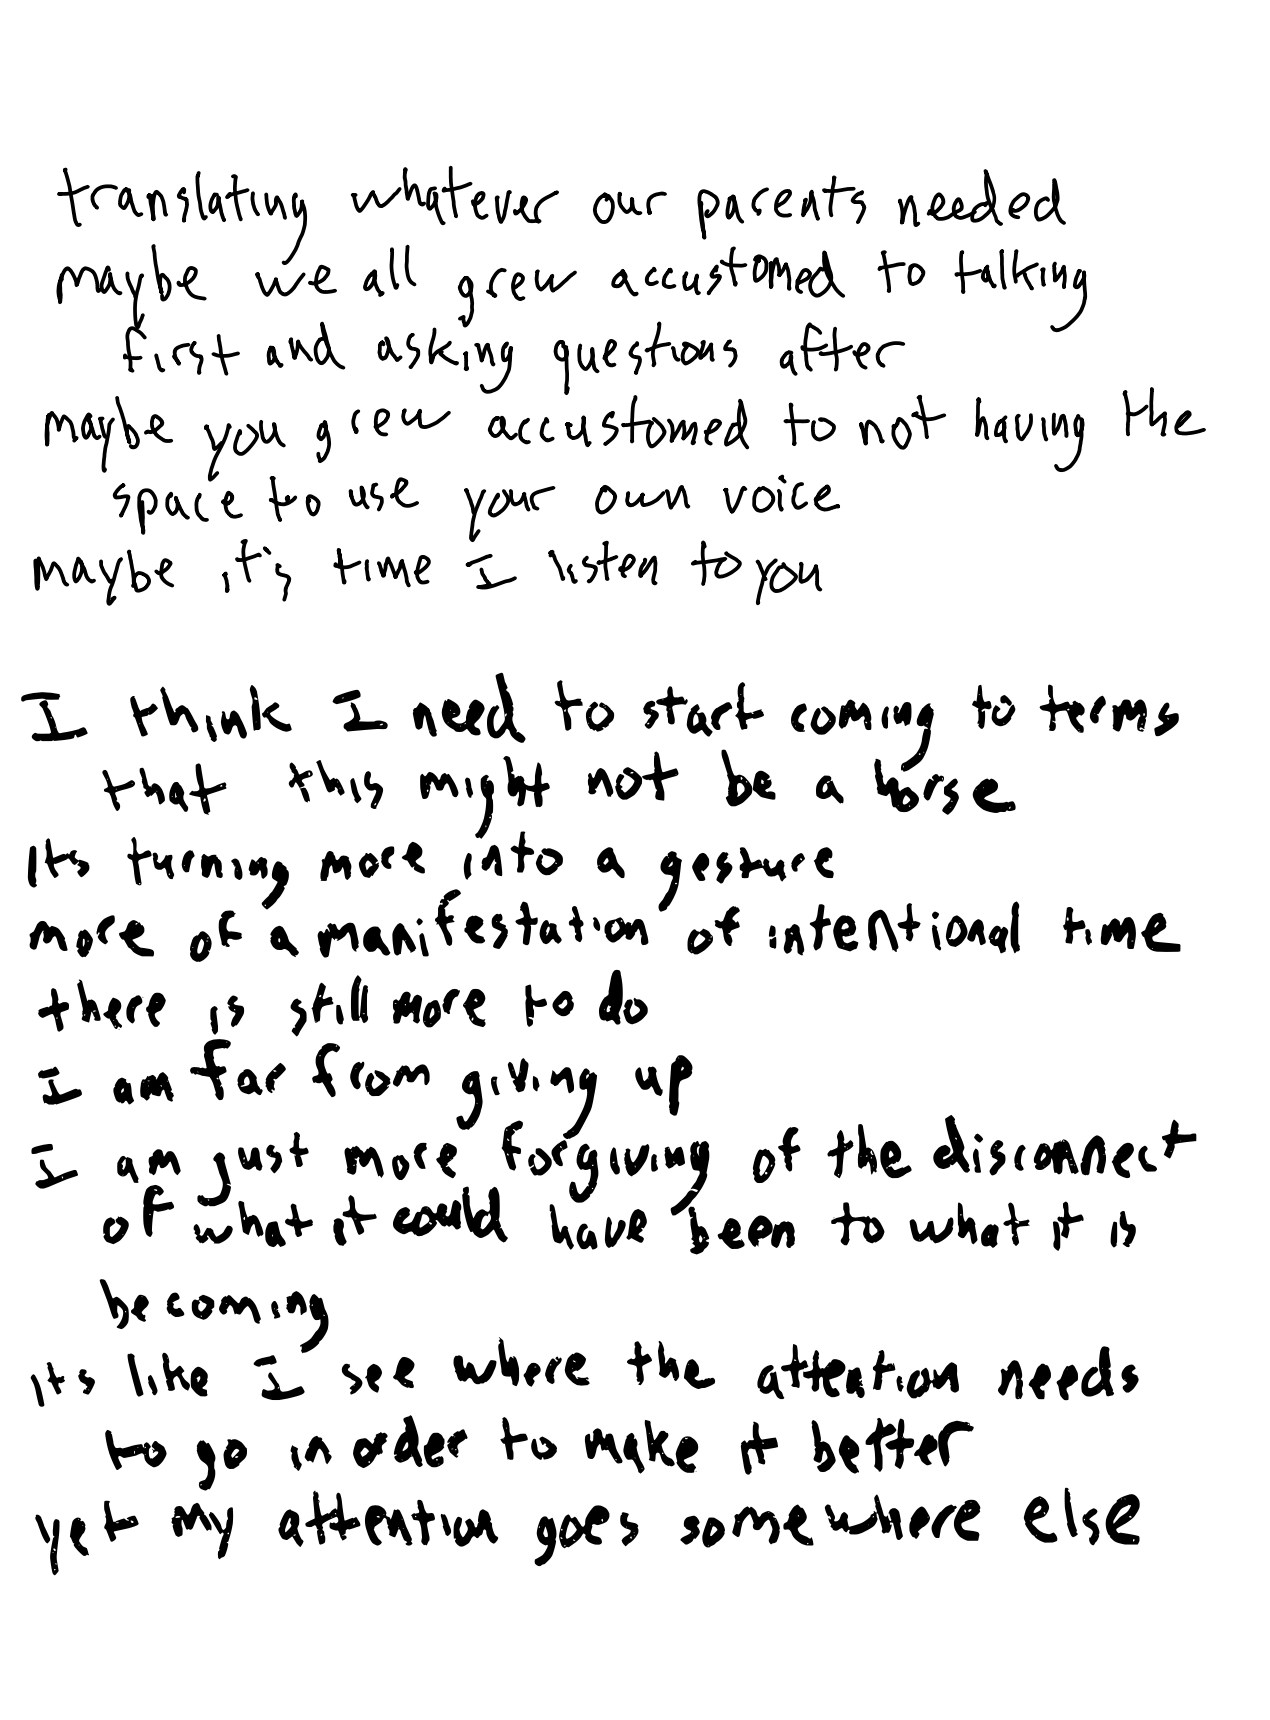 translating whatever our parents needed
maybe we all grew accustomed to talking
first and asking questions after
maybe you grew accustomed to not having the
space to use your own voice
maybe it's time I listen to you
I think I need to start coming to terms
that this might not be a horse
Its turning more into a gesture
more of a manifestation of intentional time
there is still more to do
I am far from giving up
I am just more forgiving of the disconnect
of what it could have been to what it is
becoming
its like I see where the attention needs
to go in order to make it better
yet my attention goes somewhere else